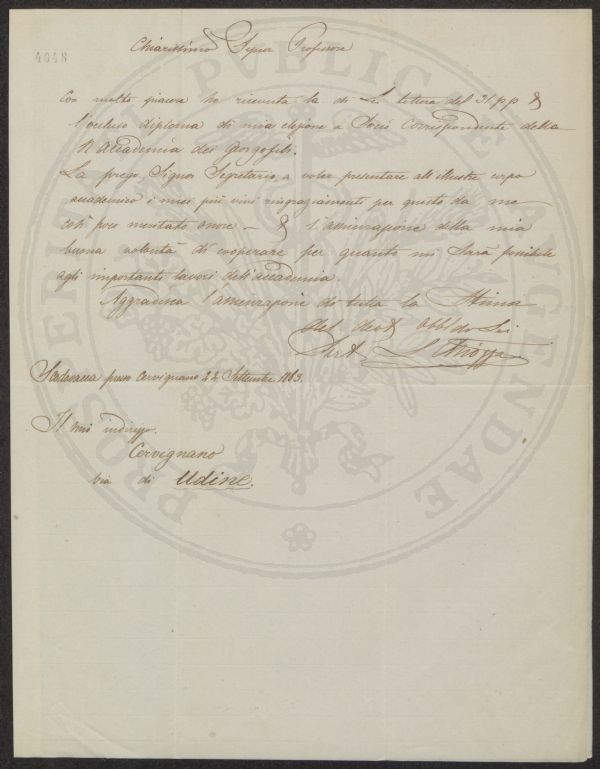 4048
Chiarissimo Signor Professore
Con molto piacere ho ricevuta la di Lei lettera del 31 p.p. &
l'accluso diploma di mia elezione a Socio Corrispondente della
R Accademia dei Georgofili.
La prego, Signor Segretario, a voler presentare all'illustre corpo
accademico i miei più vivi ringraziamenti per questo da me
così poco meritato onore – & l'assicurazione della mia
buona volontà di cooperare per quanto mi sarà possibile
agli importanti lavori dell'accademia.
Aggradisca l'assicurazione di tutta la stima
del
L Chiozza
presso Cervignano 22 Settembre 1863.
Il mio indirizzo.
Cervignano
via di Udine.
PROSPERITATI PVBLICAE AVGENDAE